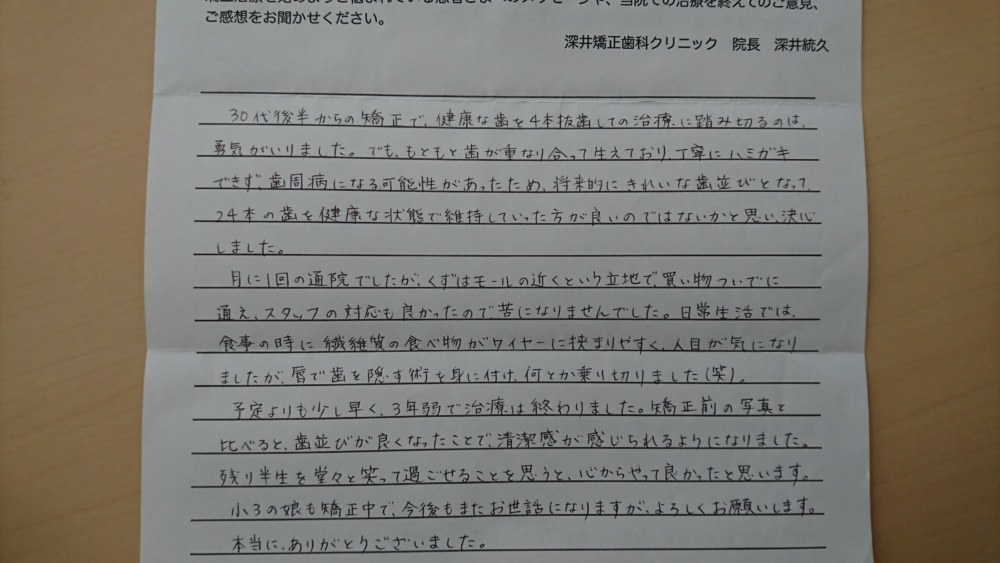 矯正治療を始めようと悩まれている患者さまへのメッセージや、当院での治療を終えてのご意見、
ご感想をお聞かせください。
深井矯正歯科クリニック 院長 深井統久
30代後半からの矯正で、健康な歯を4本抜歯しての治療に踏み切るのは、
勇気がいりました。でも、もともと歯が重なり合って生えており、丁寧にハミガキ
できず、歯周病になる可能性があったため、将来的にきれいな歯並びとなって、
24本の歯を健康な状態で維持していった方が良いのではないかと思い、決心
しました。
月に1回の通院でしたが、くずはモールの近くという立地で、買い物ついでに
通え、スタッフの対応も良かったので苦になりませんでした。日常生活では、
食事の時に繊維質の食べ物がワイヤーに挟まりやすく、人目が気になり
ましたが、唇で歯を隠す術を身に付け、何とか乗り切りました(笑)。
予定よりも少し早く、3年弱で治療は終わりました。矯正前の写真と
比べると、歯並びが良くなったことで、清潔感が感じられるようになりました。
残り半生を堂々と笑って過ごせることを思うと、心からやって良かったと思います。
小3の娘も矯正中で、今後もまたお世話になりますが、よろしくお願いします。
本当に、ありがとうございました。